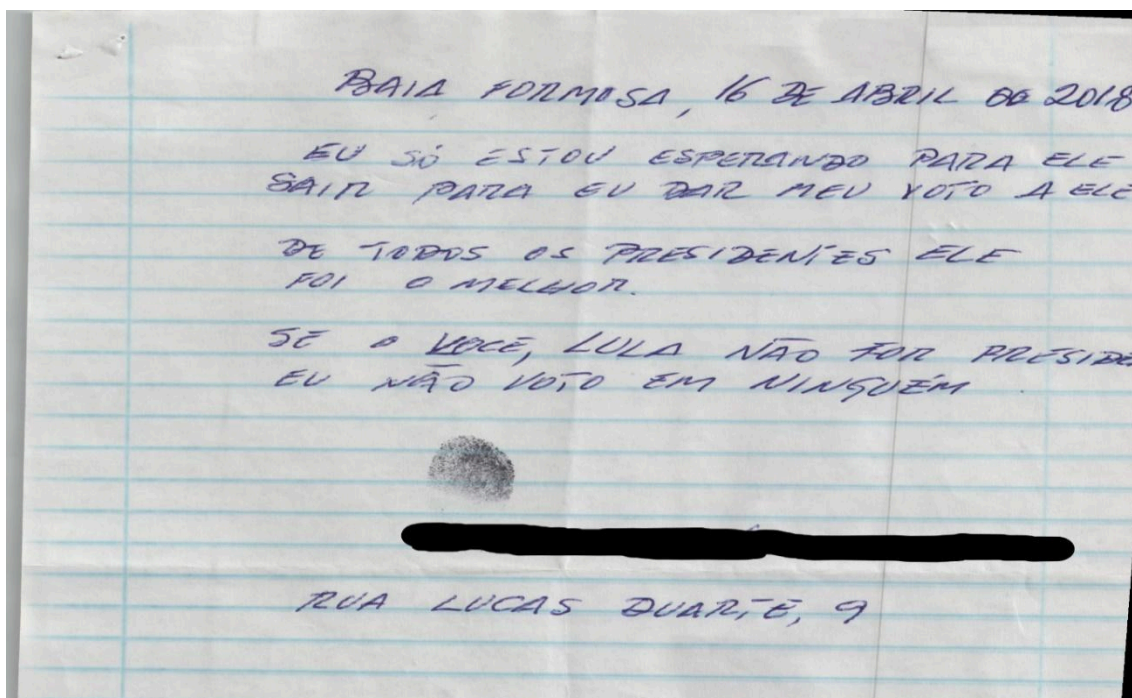 BAIA FORMOSA, 16 DE ABRIL DE 2018
EU SÓ ESTOU ESPERANDO PARA ELE
SAIR PARA EU DAR MEU VOTO A ELE
DE TODOS OS PRESIDENTES ELE
FOI O MELHOR.
SE O VOCE, LULA NÃO FOR PRESIDE
EU NÃO VOTO EM NINGUÉM.
RUA LUCAS DUARTE, 9